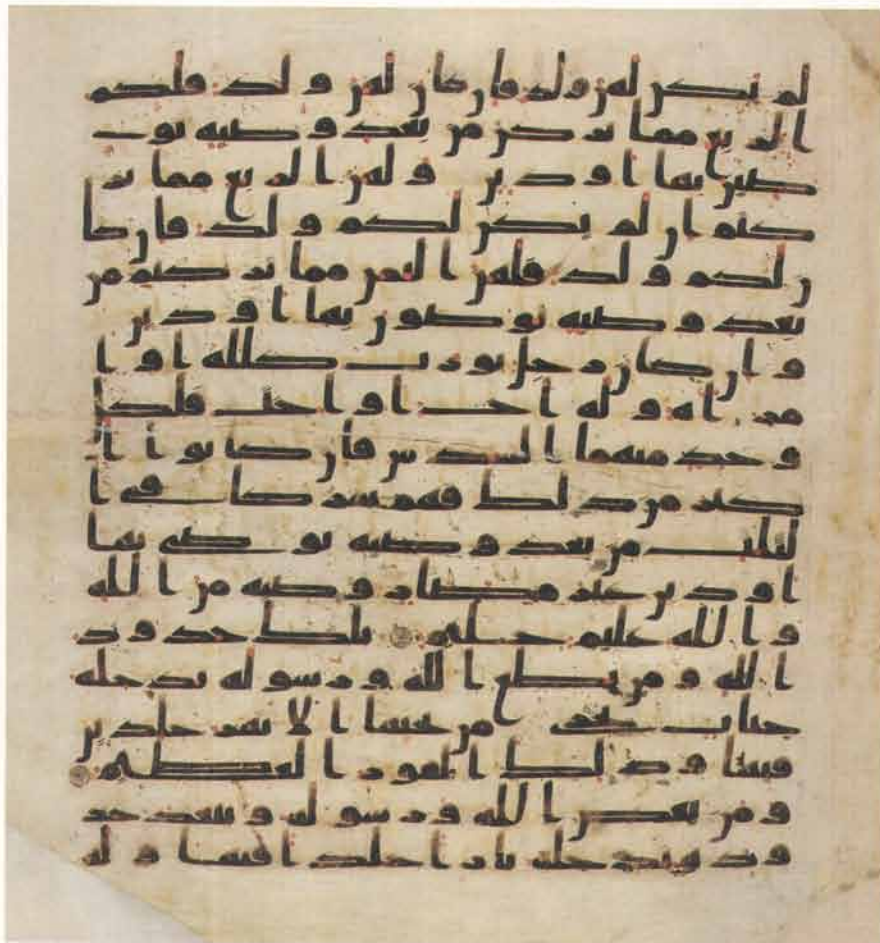 لم يكن لهن ولد فان كان لهن ولد فلكم
الربع مما تركن من بعد وصيه يو
صين بها او دين ولهن الربع مما تر
كتم ان لم يكن لكم ولد فان كا
ن لكم ولد فلهن الثمن مما تركتم من
بعد وصيه توصون بها او دين
وان كان رجل يورث كلله او ا
مراه وله اخ او اخت فلكل
وحد منهما السدس فان كانوا ا
كثر من ذلك فهم شركا في ا
لثلث من بعد وصيه يوصى بها
او دين غير مضار وصيه من الله
والله عليم حليم تلك حدود
الله ومن يطع الله ورسوله يدخله
جنات تجري من تحتها الانهر خلدين
فيها وذلك الفوز العظيم
ومن يعص الله ورسوله ويتعد حد
وده يدخله نارا خلدا فيها وله